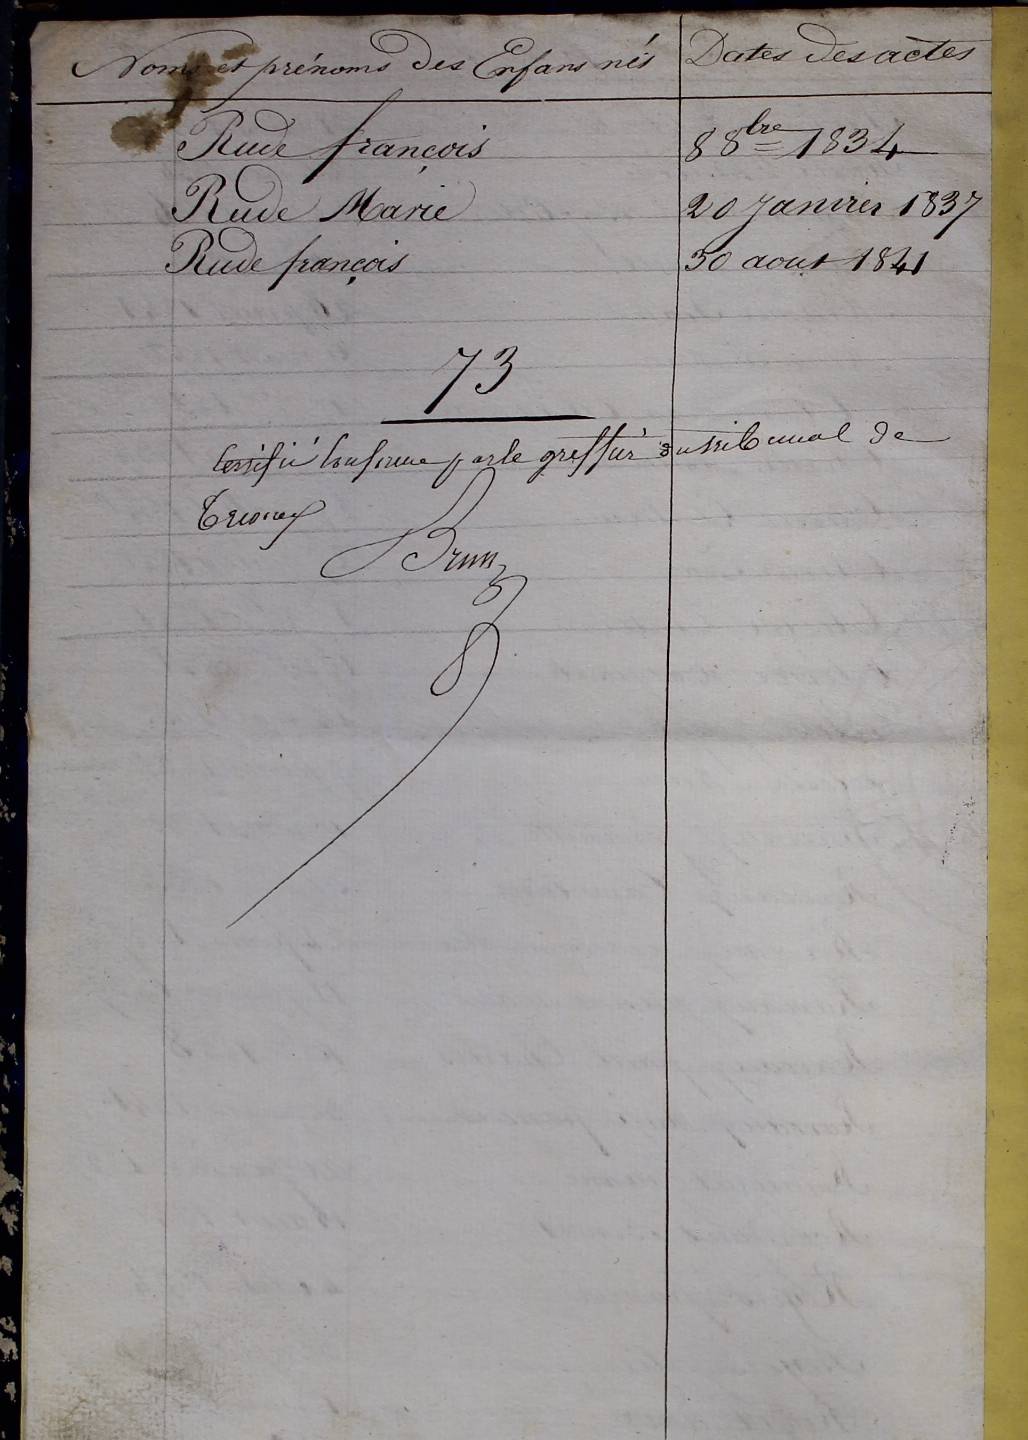 Noms et prénoms des Enfans nés Dates des actes
Rude françois 8 8bre 1834
Rude Marie 20 Janvier 1837
Rude françois 30 aout 1841
73
Certifié Conforme par le greffier du tribunal de
Brun